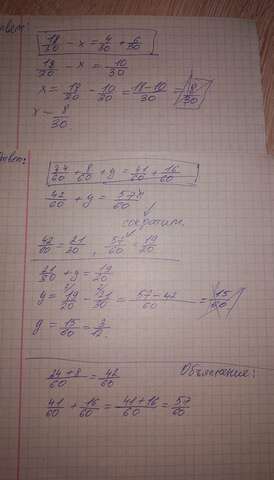 ответ:
18/30 - x = 4/30 + 6/30
18/30 - x = 10/30
x = 18/30 - 10/30 = 18-10/30 = 8/30
x - 8/30
ответ:
34/60 + 8/60 + y = 41/60 + 16/60
42/60 + y = 57/60
сократим.
42/60 = 21/20, 57/60 = 19/20
21/30 + y = 19/20
y = 19/20 - 21/30 = 57-42/60 = 15/60
y = 15/60 = 3/12.
Объяснение:
24+8/60 = 42/60
41/60 + 16/60 = 41+16/60 = 57/60